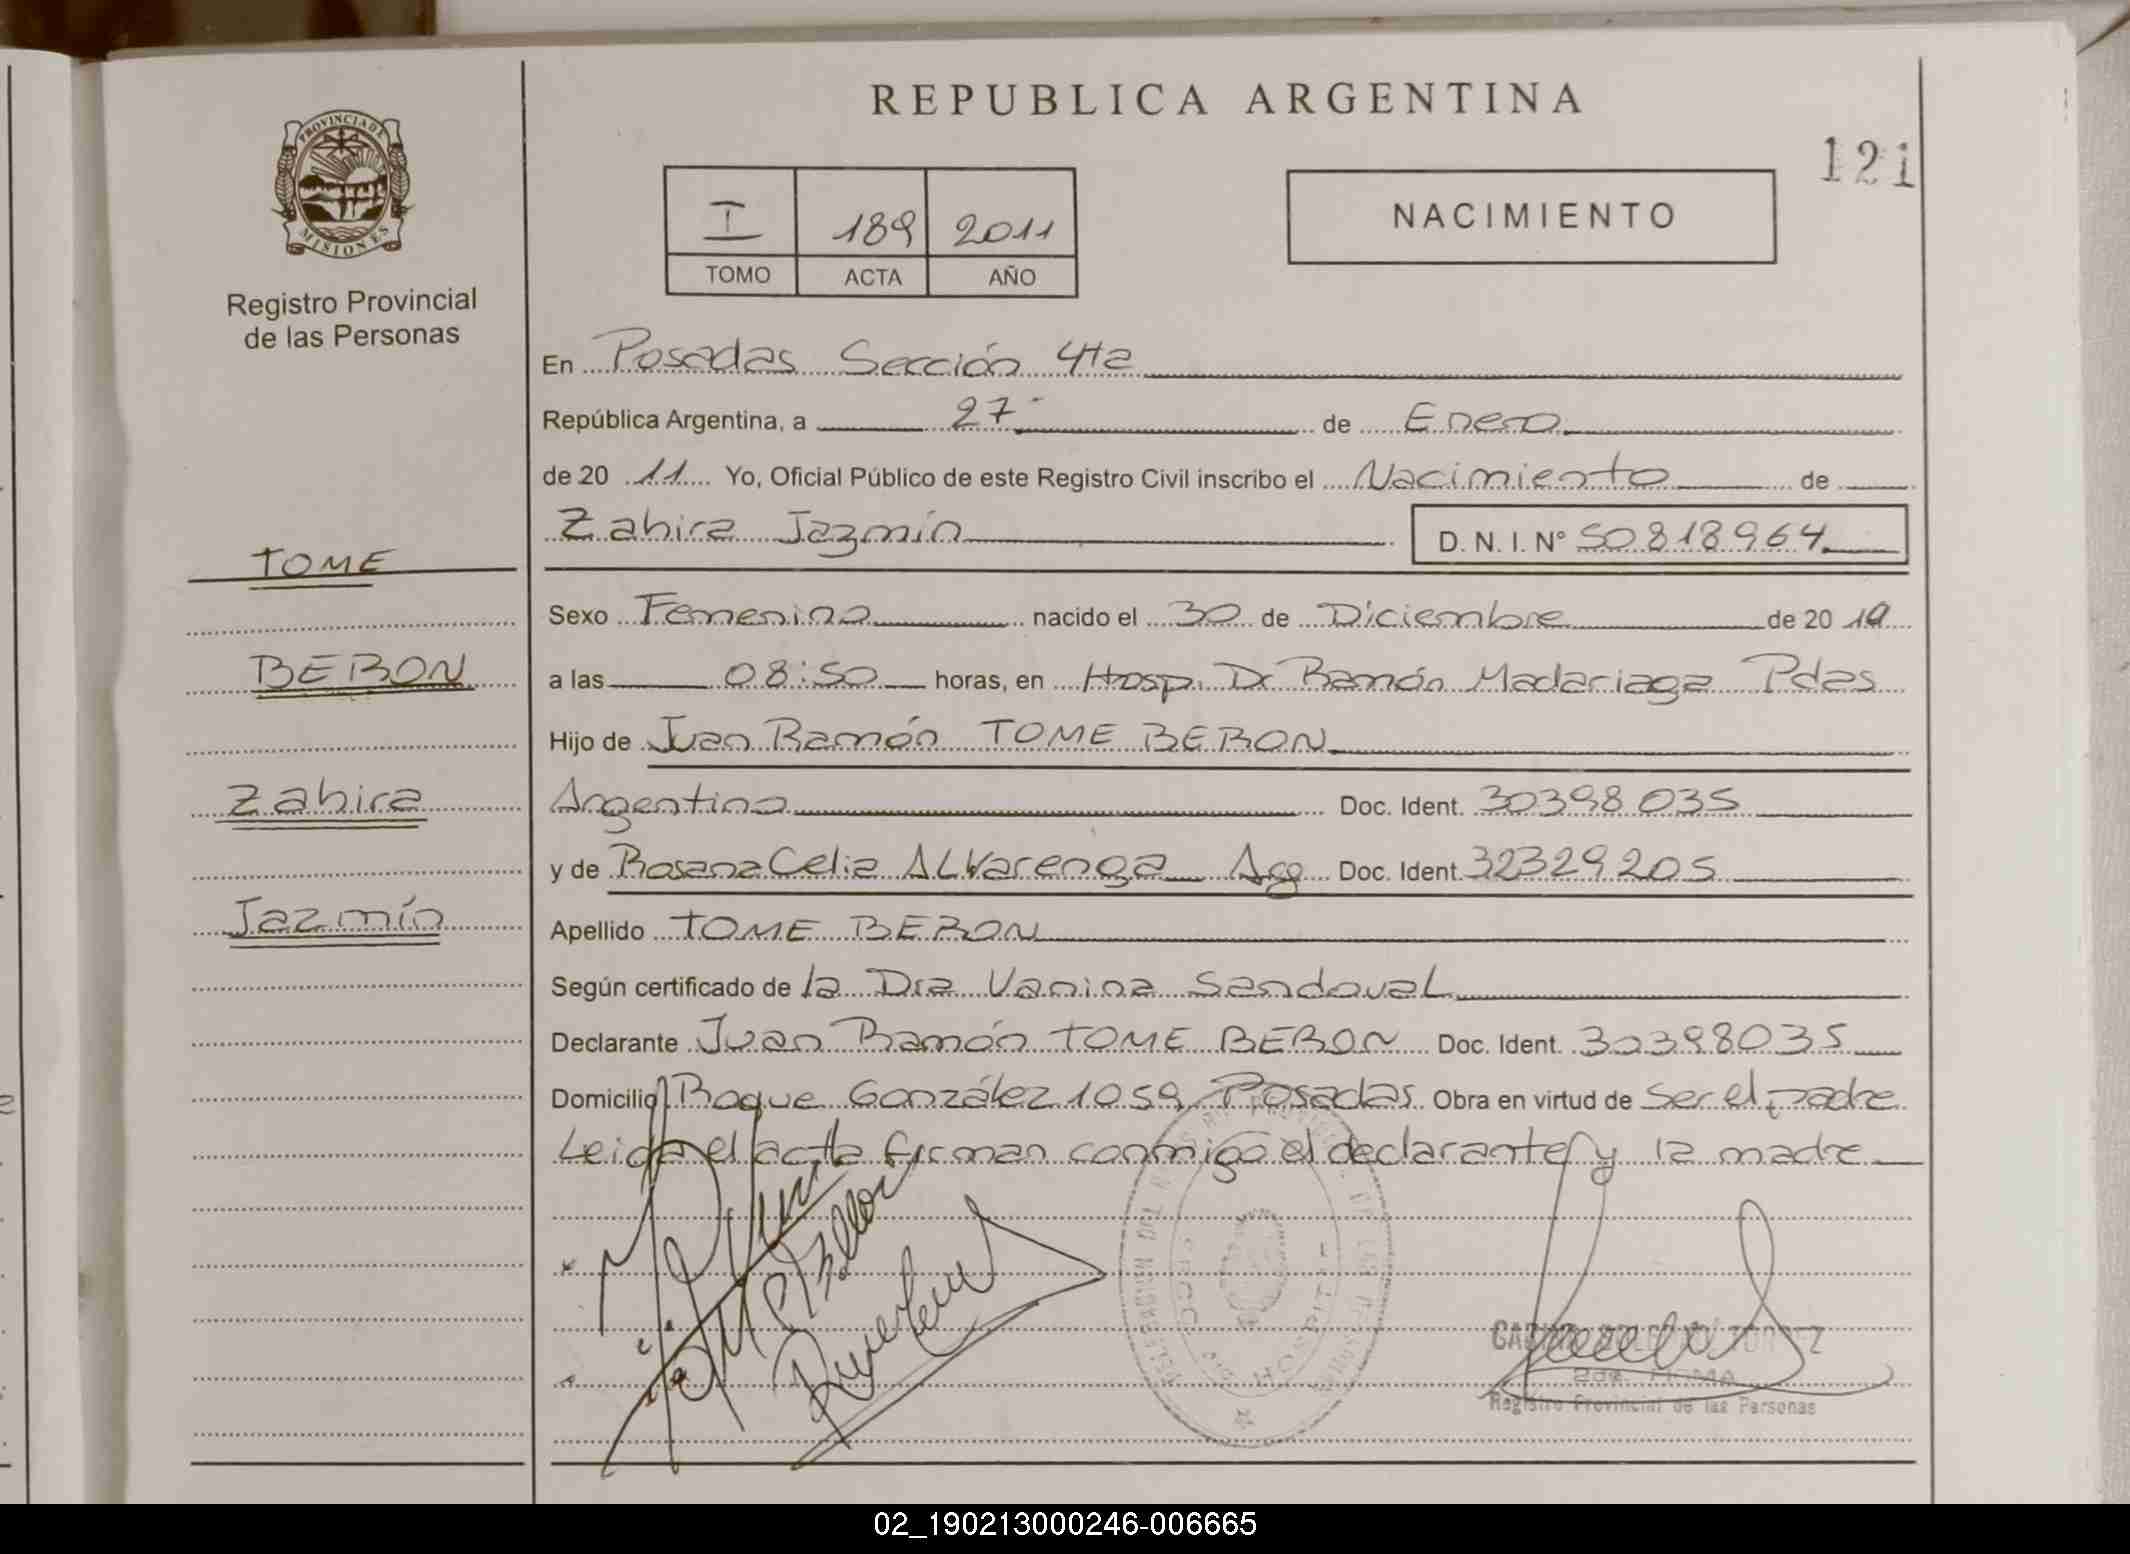 REPUBLICA ARGENTINA
121
PROVINCIA DE MISIONES
Registro Provincial
de las Personas
I 189 2011
TOMO ACTA AÑO
NACIMIENTO
En Posadas Sección 4ta
República Argentina, a 27 de Enero
de 20 11 Yo, Oficial Público de este Registro Civil inscribo el Nacimiento de
Zahira Jazmín D. N. I. N° 50818964
TOME
BERON
Zahira
Jazmín
Sexo Femenino nacido el 30 de Diciembre de 20 10
a las 08:50 horas, en Hosp. Dr Ramón Madariaga Pdas
Hijo de Juan Ramón TOME BERON
Argentino Doc. Ident. 30398035
y de Rosana Celia ALVarenga Arg Doc. Ident. 32329205
Apellido TOME BERON
Según certificado de la Dra Vanina Sandoval
Declarante Juan Ramón TOME BERON Doc. Ident. 30398035
Domicilio Roque González 1059 Posadas Obra en virtud de Ser el padre
Leida el acta firman conmigo el declarante y la madre
HOSPITAL
Registro Provincial de las Personas
02_190213000246-006665